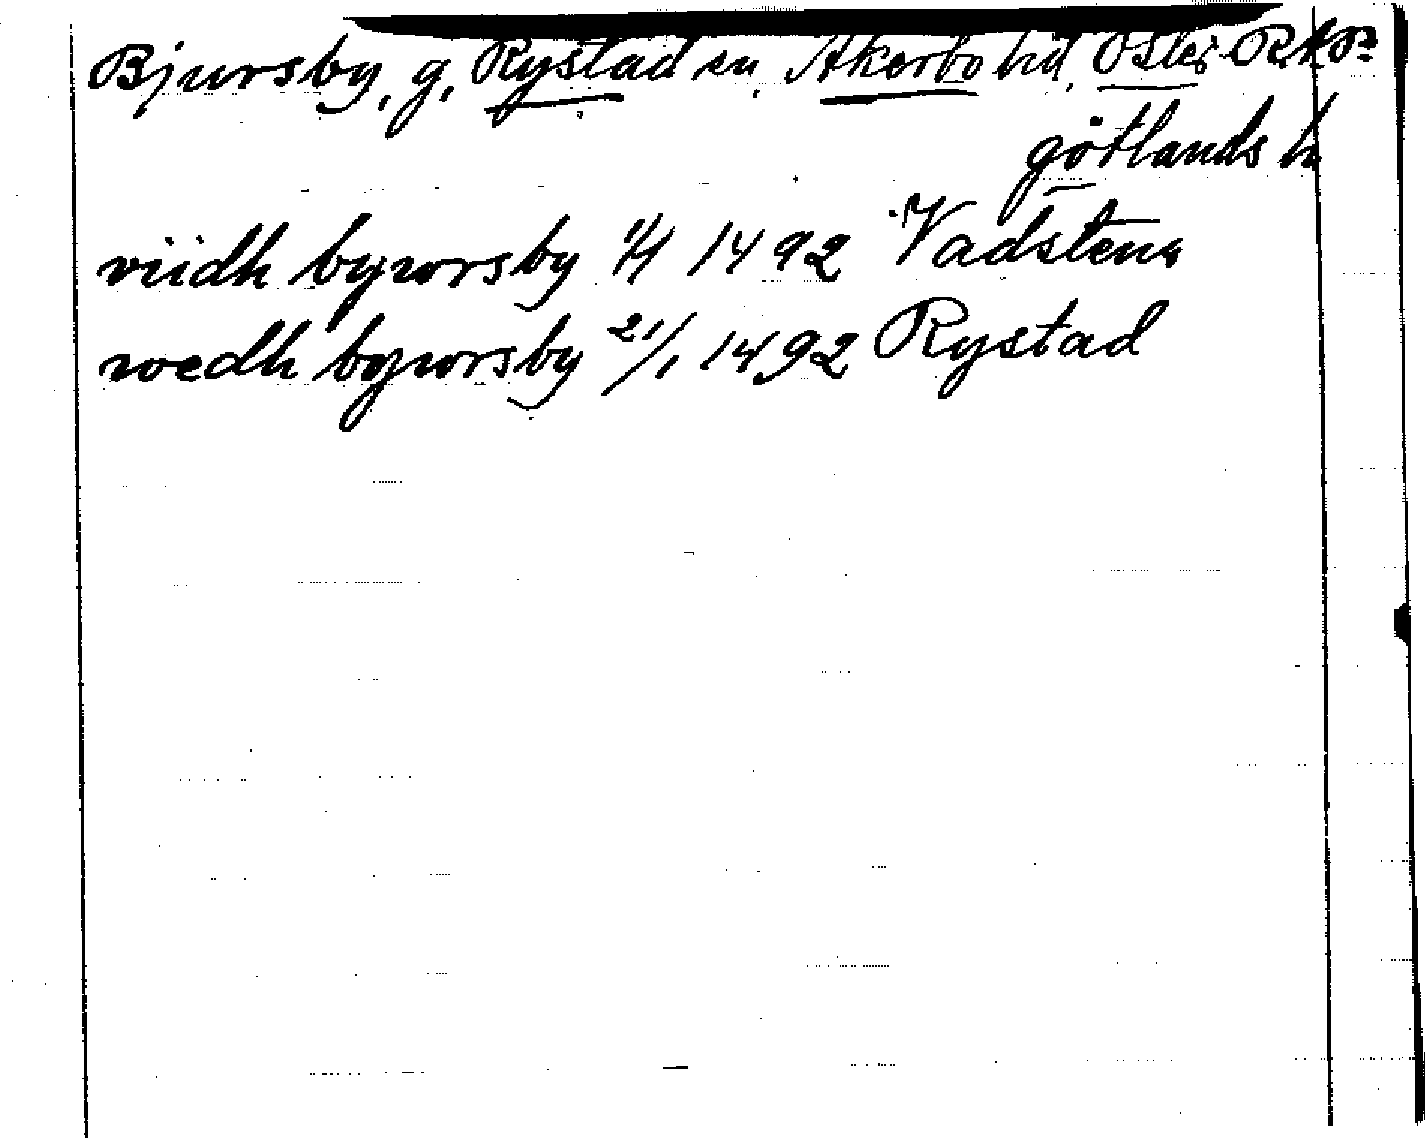 Bjursby, g, Rystad sn, Åkerbo hd, Öster- RAP:
götlands l
viidh byworsby 1/1 1492 Vadstena
wedh byworsby 21/1 1492 Rystad